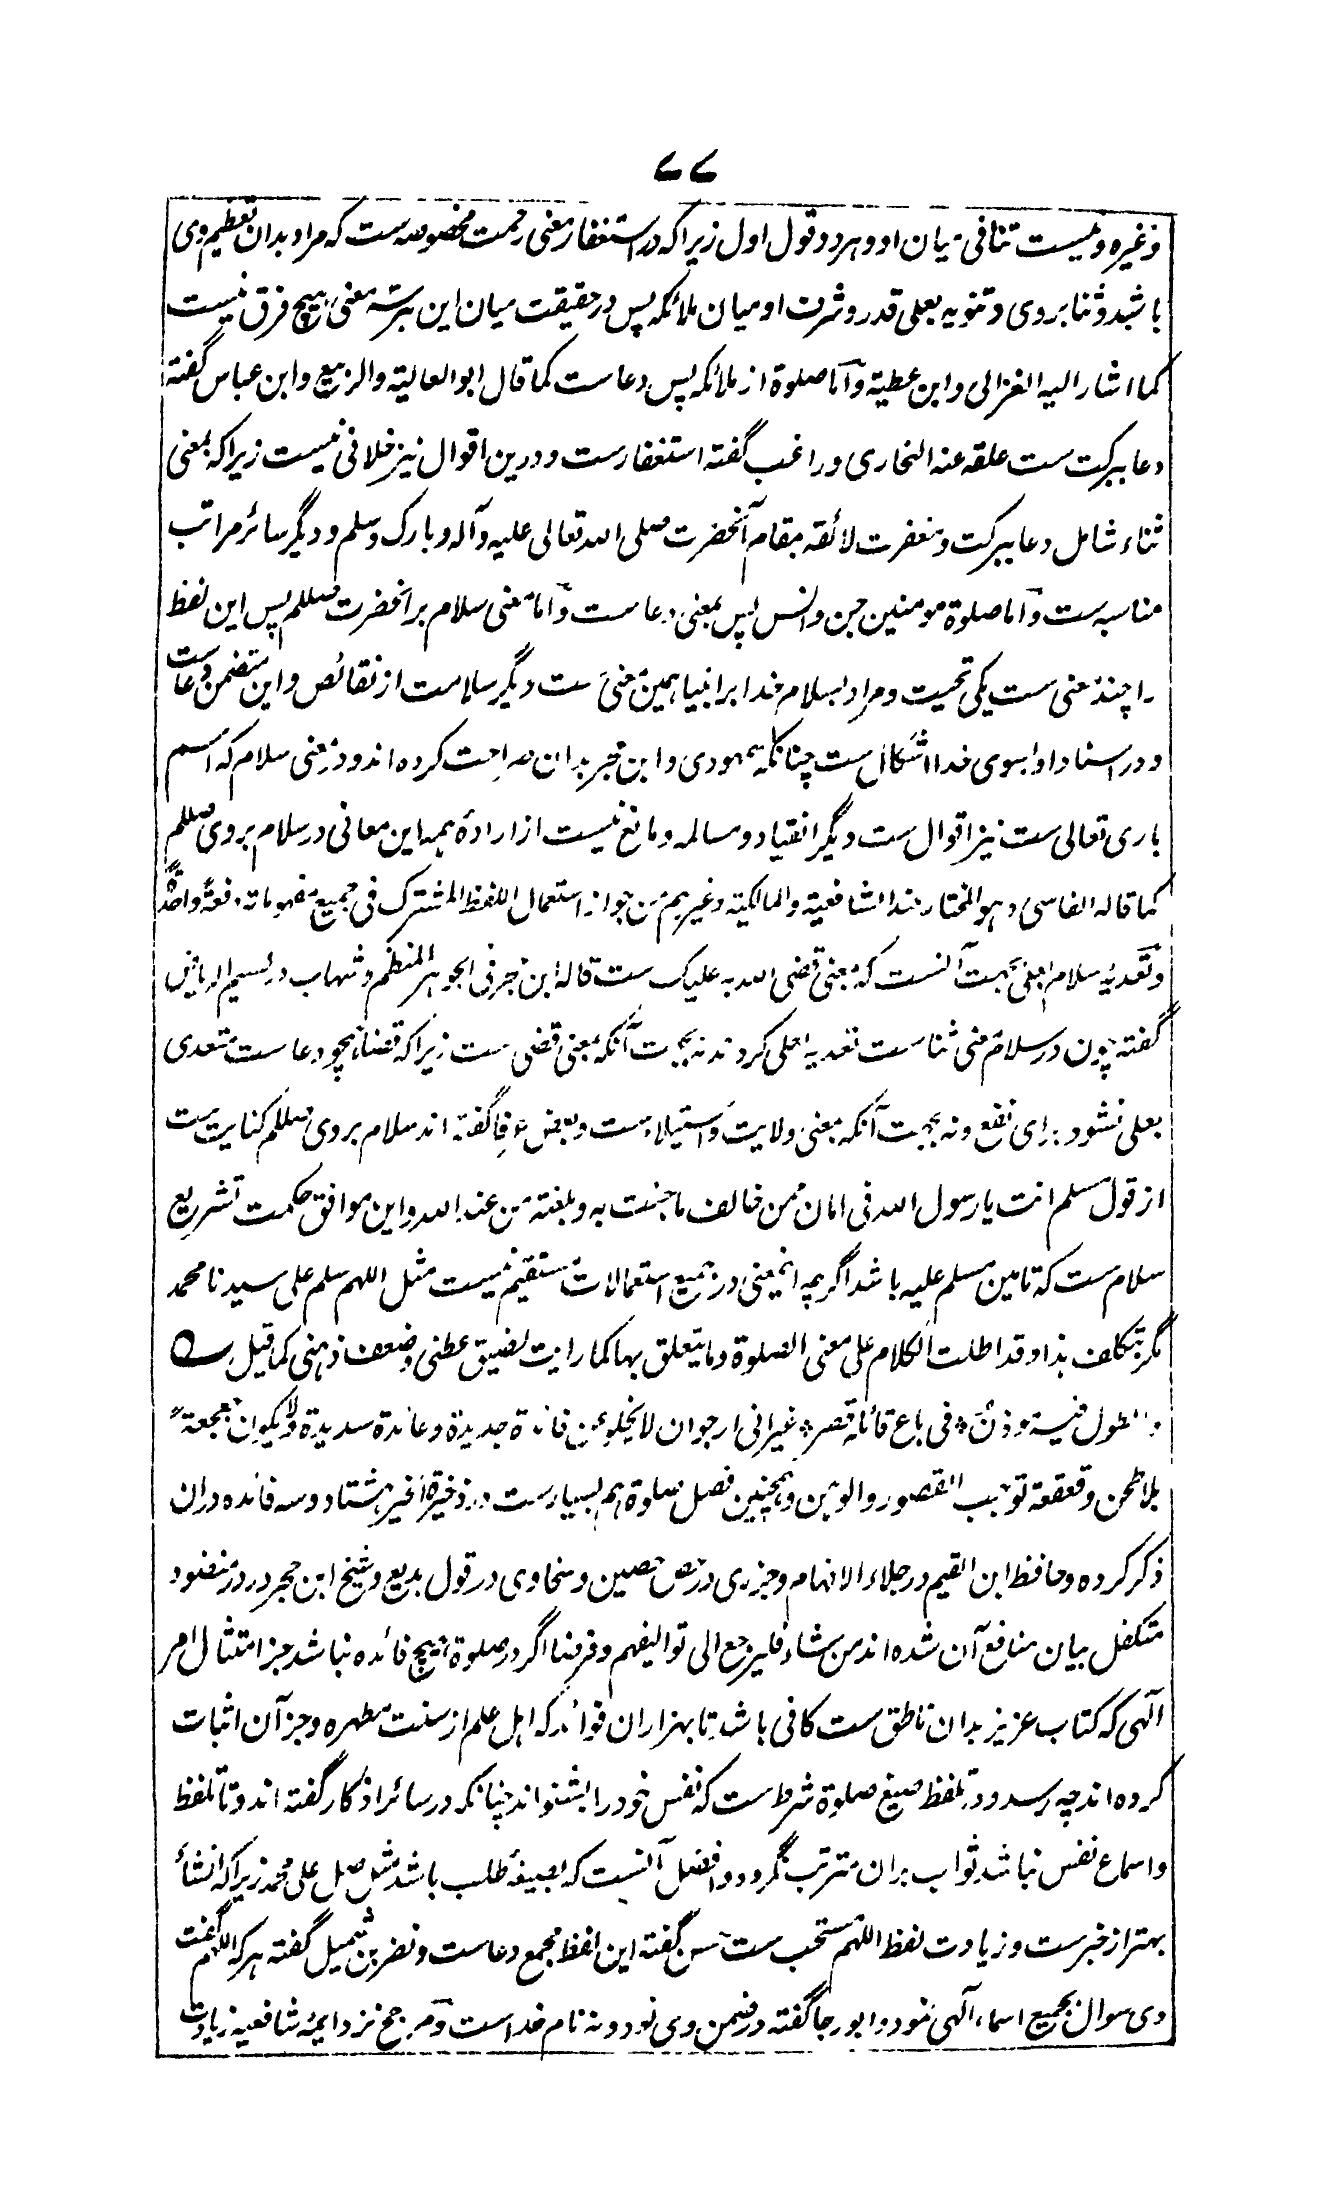 ۷۷
وغیره و نیست تنافی میان او و هر دو قول اول زیرا که در استغفار معنی رحمت مخصوصه ست که مراد بدان تعظیم وی
باشد و ثنا بر وی و تنویه بعلی قدر و شرف او میان ملائکه پس در حقیقت میان این هر سه معنی هیچ فرق نیست
کما اشار الیه الغزالی و ابن عطیة و اما صلوة از ملائکه پس دعاست کما قال ابو العالیة والربیع و ابن عباس گفته
دعا ببرکت ست علقه عنه البخاری و راغب گفته استغفارست و درین اقوال نیز خلافی نیست زیرا که بمعنی
ثناء شامل دعا ببرکت و مغفرت لائقه بمقام آنحضرت صلی الله تعالی علیه و آله و بارک وسلم و دیگر سائر مراتب
مناسبه ست و اما صلوة مومنین جن و انس پس بمعنی دعاست و اما معنی سلام بر آنحضرت صللم پس این لفظ
را چند معنی ست یکی تحیت و مراد بسلام خدا بر انبیا همین معنی ست دیگر سلامت از نقائص و این متضمن دعاست
و در اسناد او بسوی خدا اشکال ست چنانکه سمهودی و ابن حجر بدان صراحت کرده اند و در معنی سلام که اسم
باری تعالی ست نیز اقوال ست دیگر انقیاد و مسالمه و مانع نیست از ارادۀ همه این معانی در سلام بر وی صللم
کما قاله الفاسی و هو المختار عند الشافعیة والمالکیة وغیرهم من جواز استعمال اللفظ المشترک فی جمیع مفهوماته دفعة واحدة
و تعدیۀ سلام بعلی بجهت آنست که بمعنی قضی الله به علیک ست قاله ابن حجر فی الجوهر المنظم و شهاب در نسیم الریاض
گفته چون در سلام معنی ثناست تعدیه بعلی کردند نه بجهت آنکه بمعنی قضی ست زیرا که قضا همچو دعاست متعدی
بعلی نشود برای نفع و نه بجهت آنکه بمعنی ولایت و استیلاء ست و بعض عرفا گفته اند سلام بر وی صللم کنایت ست
از قول مسلم انت یا رسول الله فی امان ممن خالف ما جئت به و بلغته من عند الله و این موافق حکمت تشریع
سلام ست که تامین مسلم علیه باشد اگرچه اینمعنی در جمیع استعمالات مستقیم نیست مثل اللهم سلم علی سیدنا محمد
مگر بتکلف هذا وقد اطلت الکلام علی معنی الصلوة وما یتعلق بها کما رایت لضیق عطنی وضعف ذهنی کما قیل
والطول فیه وذن فی باع قائله قصر غیر انی ارجو ان لا یخلو من فائدة جدیدة وعائدة سدیدة ولا یکون جعجعة
بلا طحن وقعقعة توجب القصور والوهن و همچنین فصل صلوة هم بسیارست در ذخیرة الخیر هشتاد و سه فائده دران
ذکر کرده و حافظ ابن القیم در جلاء الافهام و جزری در حصن حصین و سخاوی در قول بدیع و شیخ ابن حجر در در منضود
متکفل بیان منافع آن شده اند من شاء فلیرجع الی توالیفهم و فرضنا اگر در صلوة هیچ فائده نباشد جز امتثال امر
آلهی که کتاب عزیز بدان ناطق ست کافی باشد تا بهزاران فوائد که اهل علم از سنت مطهره و جز آن اثبات
کرده اند چه رسد و در تلفظ صیغ صلوة شرط ست که نفس خود را بشنواند چنانکه در سائر اذکار گفته اند و تا تلفظ
و اسماع نفس نباشد ثواب بران مترتب نگردد و افضل آنست که بصیغۀ طلب باشد مثل صل علی محمد زیرا که انشاء
بهتر از خبرست و زیادت لفظ اللهم مستحب ست حسن گفته این لفظ مجمع دعاست و نضر بن شمیل گفته هر که اللهم گفت
وی سوال بجمیع اسماء آلهی نمود و ابو رجا گفته در ضمن وی نود و نه نام خداست و مرجح نزد ایمۀ شافعیه زیادت